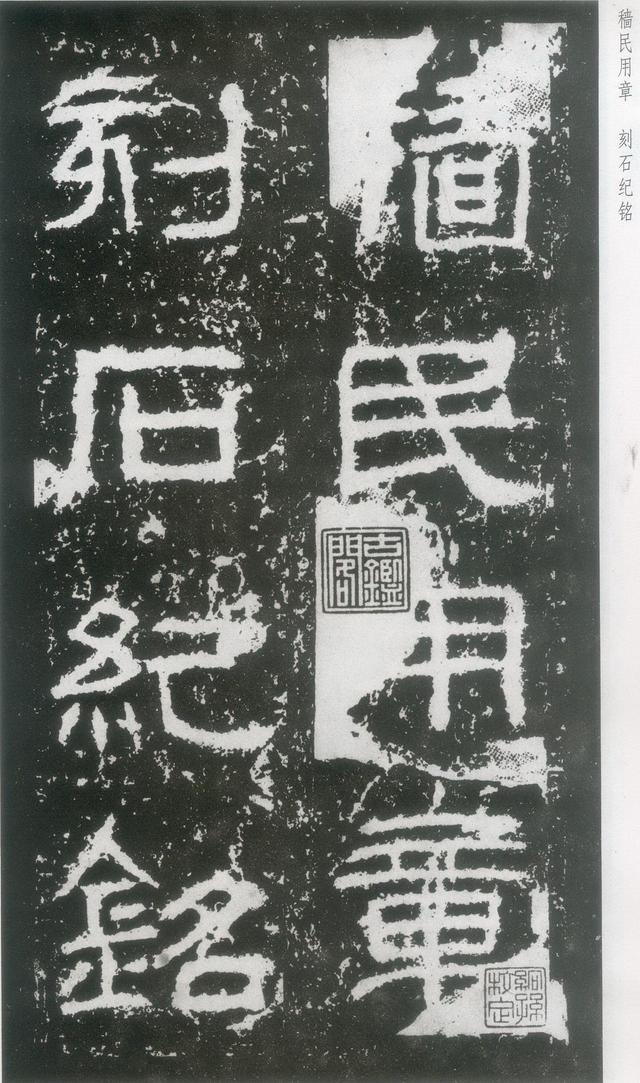 穑民用章 刻石纪铭
穡民用章
刻石紀銘
古鑑閣
絅孫校定